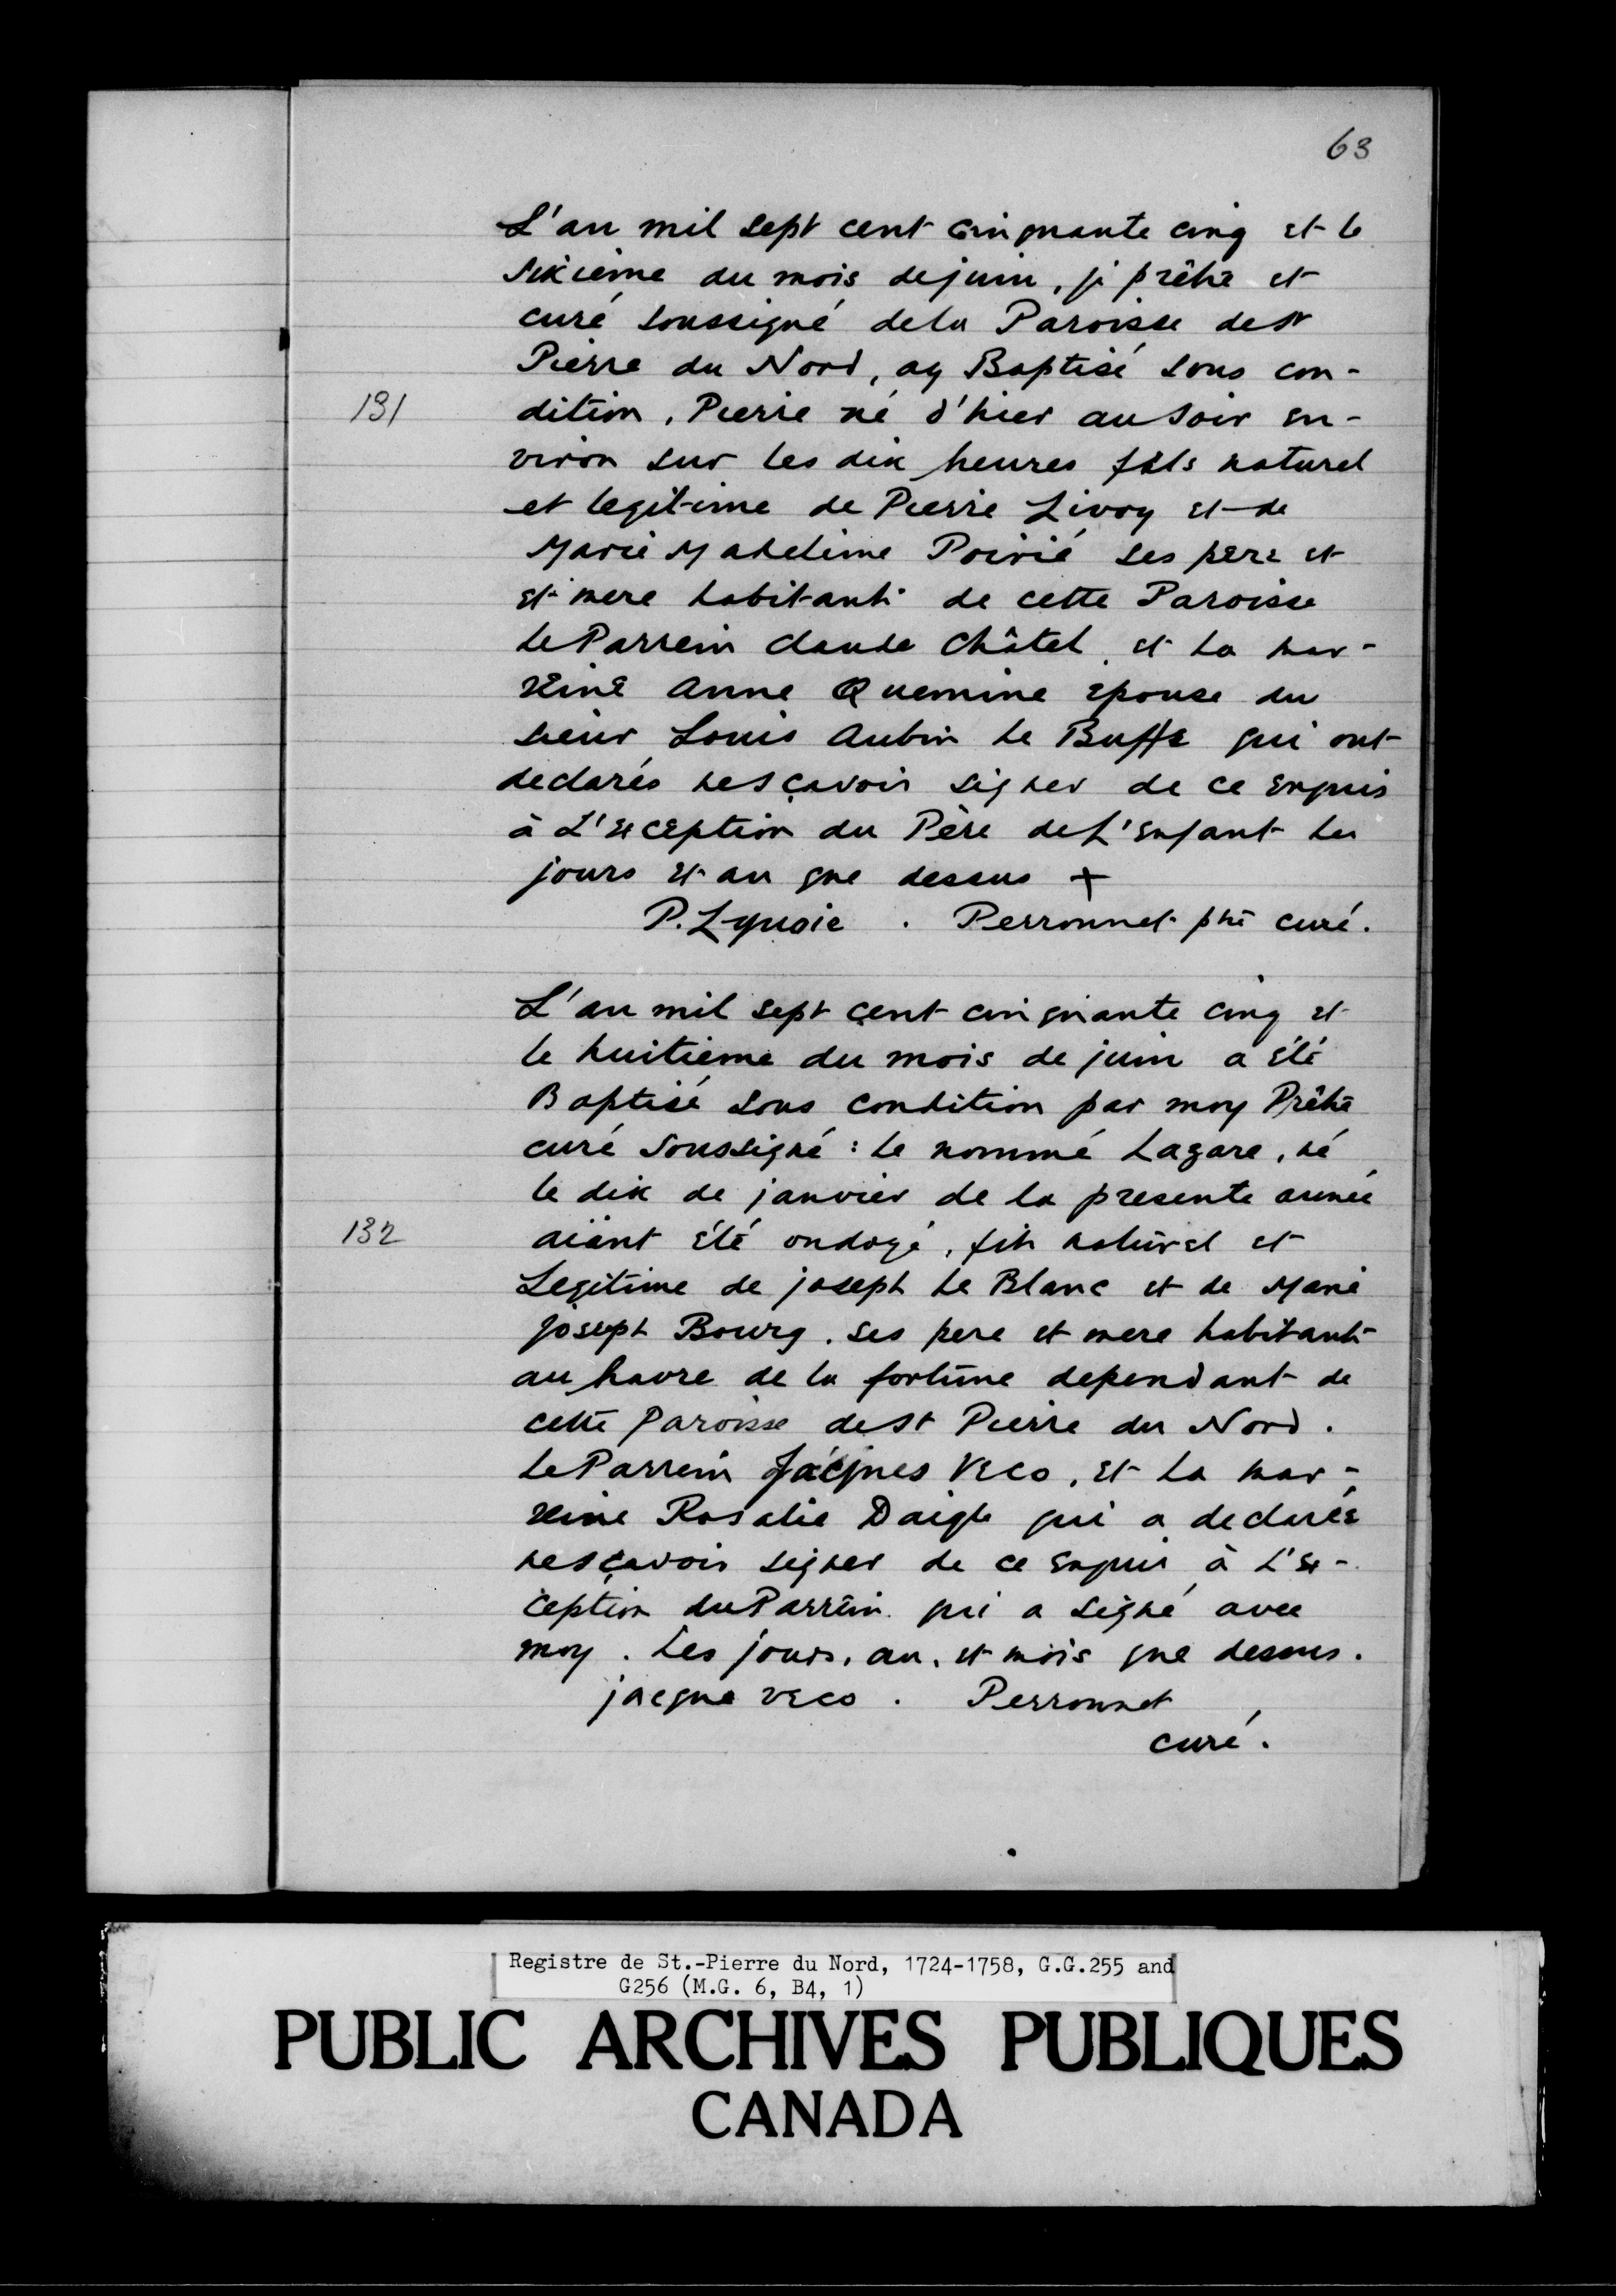 63
L'an mil sept cent cinquante cinq et le
sixieme du mois dejuin, je prêtre et
curé soussigné dela Paroisse de St
Pierre du Nord, ay Baptisé sous con-
131
dition, Pierre né d'hier au soir en-
viron sur les dix heures fils naturel
et legitime de Pierre Livoy et de
Marie Madeleine Poirié ses pere et
et mere habitants de cette Paroisse
le Parrein Claude Châtel et la mar-
reine Anne Quemine epouse du
sieur Louis Aubin le Buffe qui ont
declarés nesçavoir signer de ce enquis
à L'exception du Père de L'enfant les
jours et an que dessus +
P. Lyvoie . Perronnet ptre curé.
L'an mil sept cent cinquante cinq et
le huitieme du mois de juin a été
Baptisé sous condition par moy Prêtre
curé soussigné : le nommé Lazare, né
le dix de janvier de la presente année
132
aiant été ondoyé, fils naturel et
Legitime de joseph le Blanc et de Marie
joseph Bourg. ses pere et mere habitants
au havre de la fortune dependant de
cette Paroisse de St Pierre du Nord.
le Parrein Jacques Veco, et la mar-
reine Rosalie Daigle qui a declarée
nesçavoir signer de ce enquis à L'ex-
ception du Parrein qui a signé avec
moy. Les jours, an, et mois que dessus.
jacque veco . Perronnet
curé.
Registre de St.-Pierre du Nord, 1724-1758, G.G.255 and
G256 (M.G. 6, B4, 1)
PUBLIC ARCHIVES PUBLIQUES
CANADA